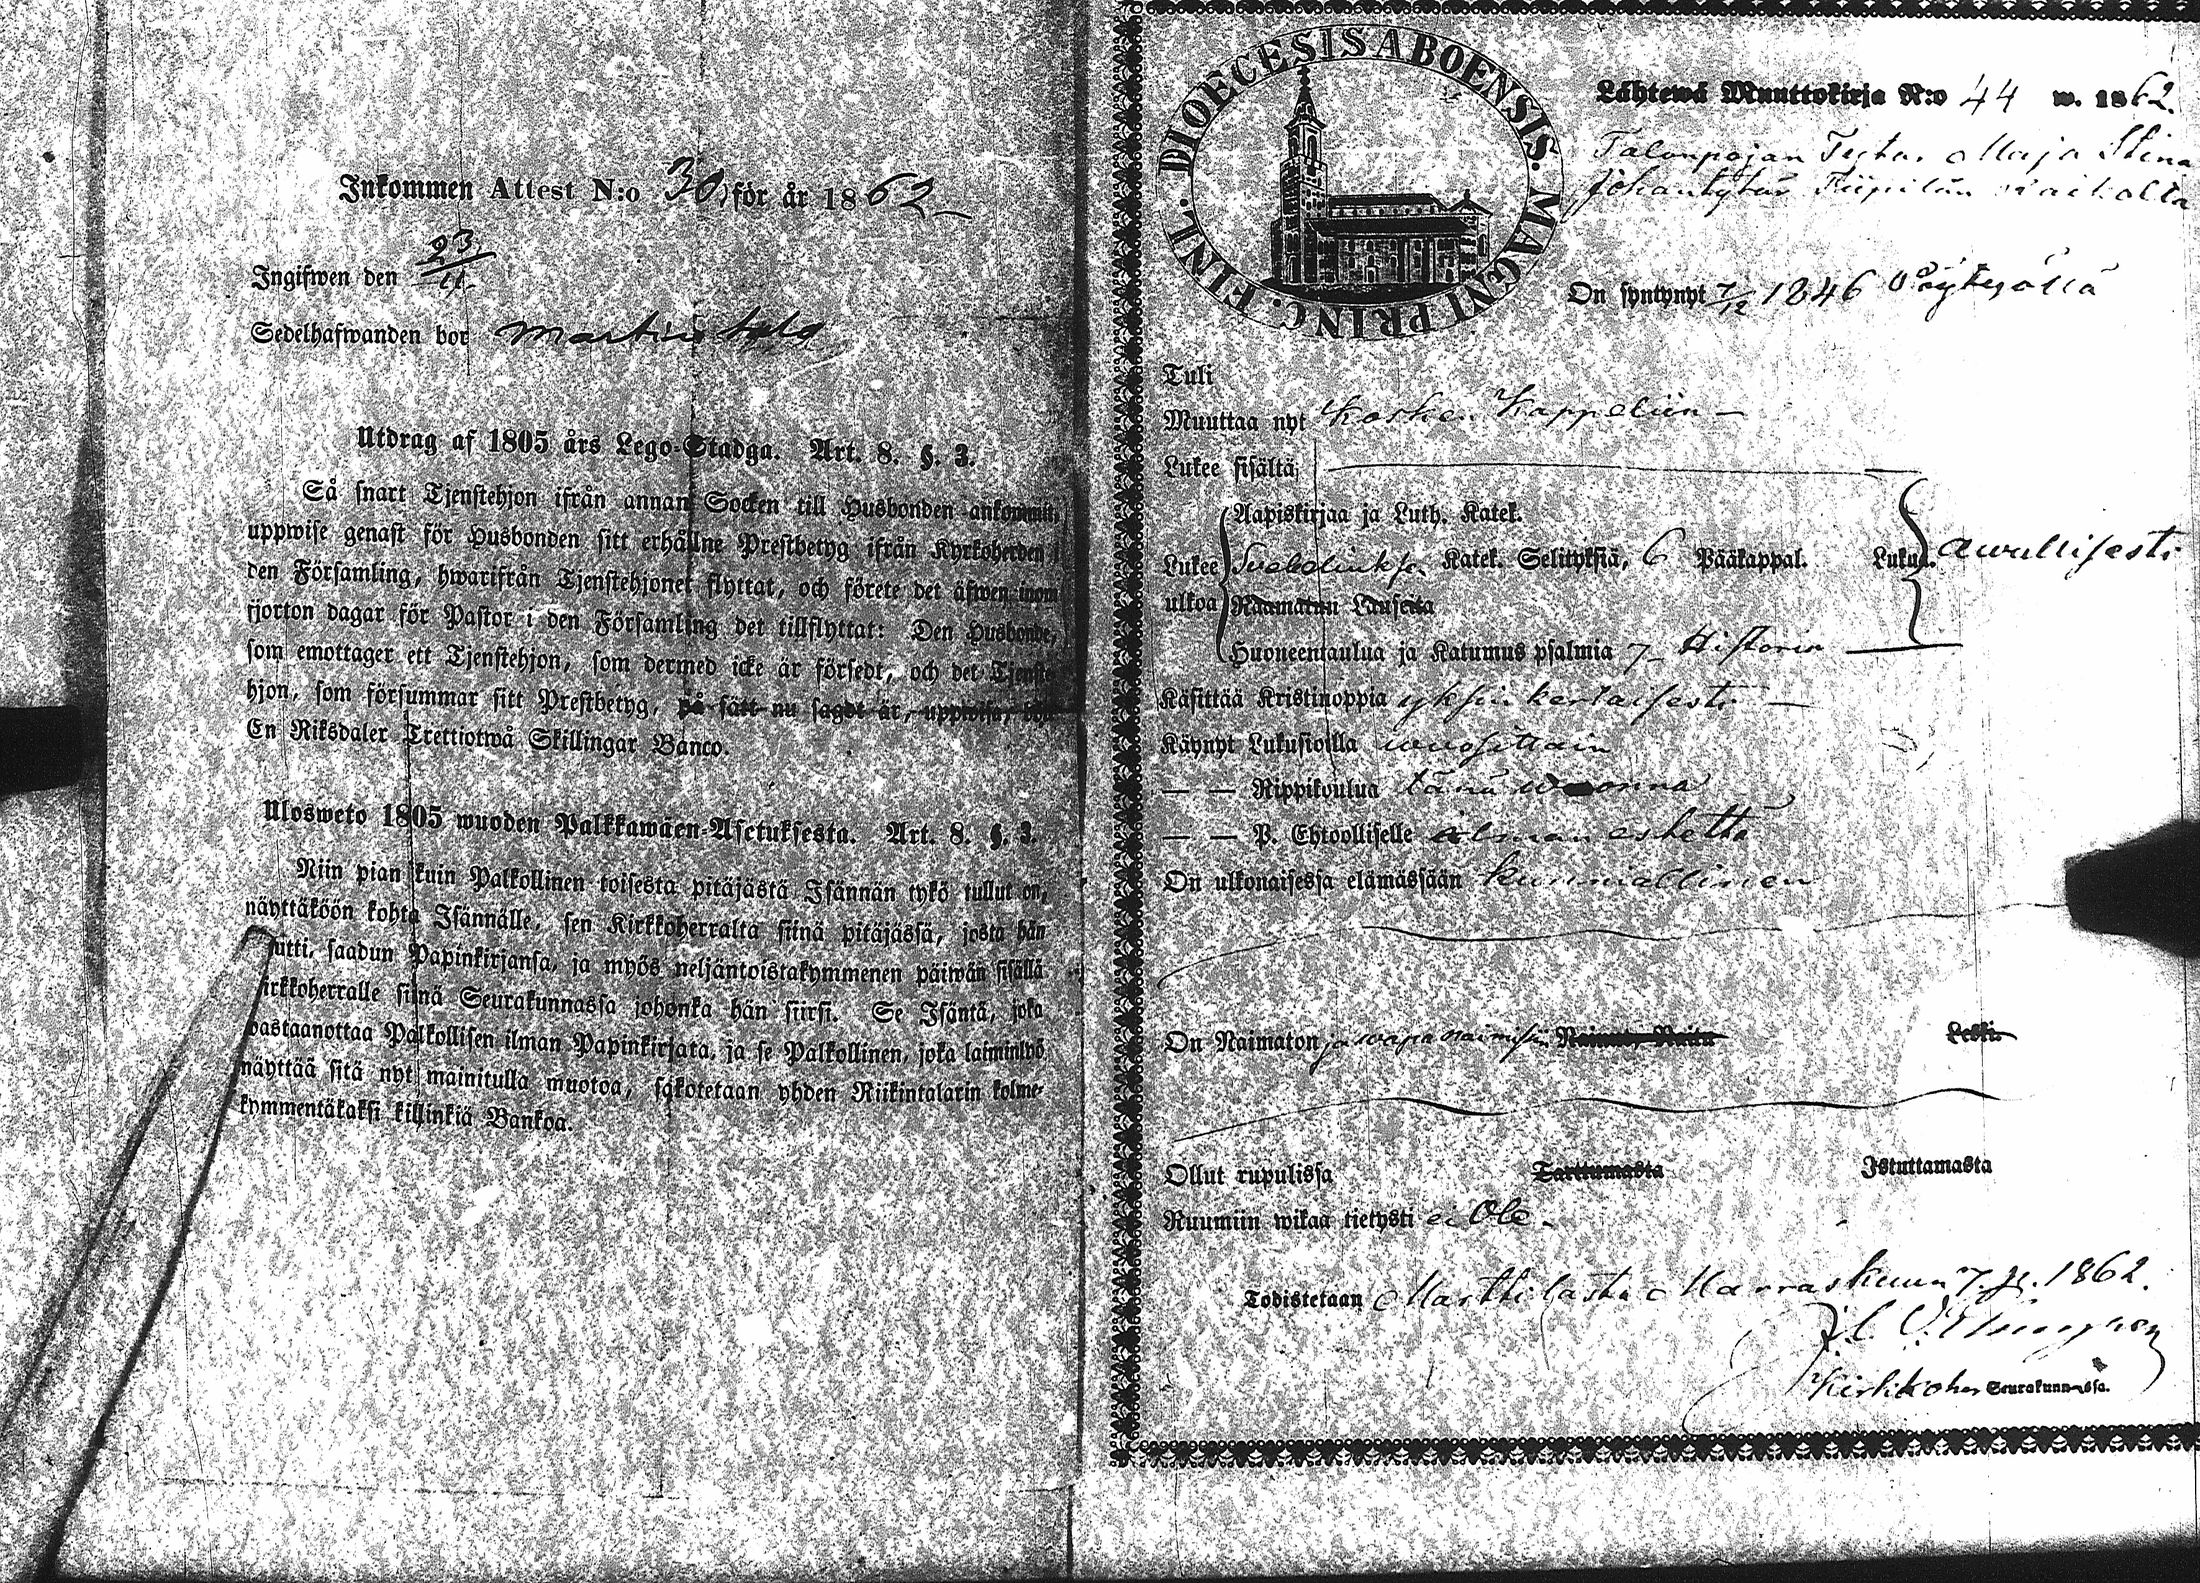 Inkommen Attest N:o 30, för år 1862
Ingifwen den 23/11
Sedelhafwanden bor Martins
Utdrag af 1805 års Lego-Stadga. Art. 8. §. 3.
Så snart Tjenstehjon ifrån annan Socken till Husbonden ankommit,
uppwise genast för Husbonden sitt erhållne Prestbetyg ifrån Kyrkoherden i
den Församling, hwarifrån Tjenstehjonet flyttat, och förete det äfwen inom
fjorton dagar för Pastor i den Församling det tillflyttat: Den Husbonde,
som emottager ett Tjenstehjon, som dermed icke är försedt, och det Tjenste-
hjon, som försummar sitt Prestbetyg, på sätt nu sagdt är, uppwisa, böte
En Riksdaler Trettiotwå Skillingar Banco.
Ulosweto 1805 wuoden Palkkawäen-Asetuksesta. Art. 8. §. 3.
Niin pian kuin Palkollinen toisesta pitäjästä Isännän tykö tullut on,
näyttäköön kohta Isännälle, sen Kirkkoherralta siinä pitäjässä, josta hän
muutti, saadun Papinkirjansa, ja myös neljäntoistakymmenen päiwän sisällä
Kirkkoherralle siinä Seurakunnassa johonka hän siirsi. Se Isäntä, joka
wastaanottaa Palkollisen ilman Papinkirjata, ja se Palkollinen, joka laiminlyö
näyttää sitä nyt mainitulla muotoa, sakotetaan yhden Riikintalarin kolme-
kymmentäkaksi killinkiä Bankoa.
DIOECESIS ABOENSIS. MAGNI PRINC. FINL.
Lähtewä Muuttokirja N:o 44 w. 1862.
Talonpojan Tytar Maja Stina
Johantytär
On syntynyt 7/12 1846 Pöytyällä
Tuli
Muuttaa nyt Kosken Kappeliin
Lukee sisältä
Aapiskirjaa ja Luth. Katek.
Lukee ulkoa Svebeliuksen Katek. Selityksiä, 6 Pääkappal. Lukua. awullisesti
Raamatun Lauseita
Huoneentaulua ja Katumus psalmia 7 Historia
Käsittää Kristinoppia yksinkertaisesti
Käynyt Lukusioilla wuosittain
— — Rippikoulua tänä wuonna
— — P. Ehtoolliselle ilman estettä
On ulkonaisessa elämässään kunniallinen
On Naimaton ja wapa naimisiin Nainut, Naitu Leski.
Ollut rupulissa Tarttumasta Istuttamasta
Ruumiin wikaa tietysti ei Ole.
Todistetaan Marttilasta Marraskuun 7. p. 1862.
Kirkkoher Seurakunnassa.